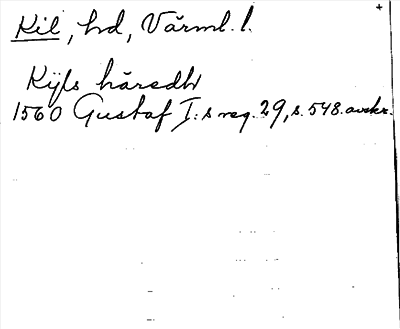 Kil, hd, Värml. l.
Kijls häredh
1560 Gustaf I:s reg. 29, s. 548. avskr.